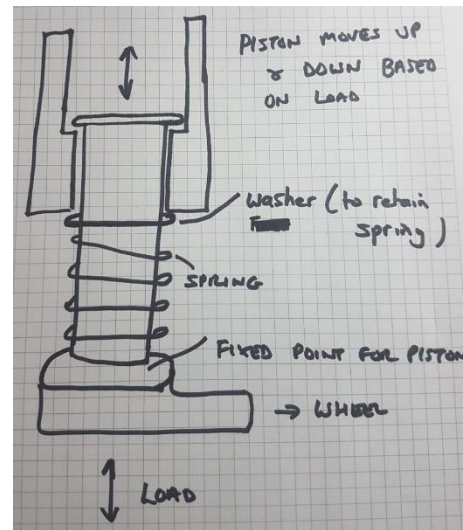 PISTON MOVES UP
& DOWN BASED
ON LOAD
Washer (to retain
spring)
SPRING
FIXED POINT FOR PISTON
→ WHEEL
LOAD